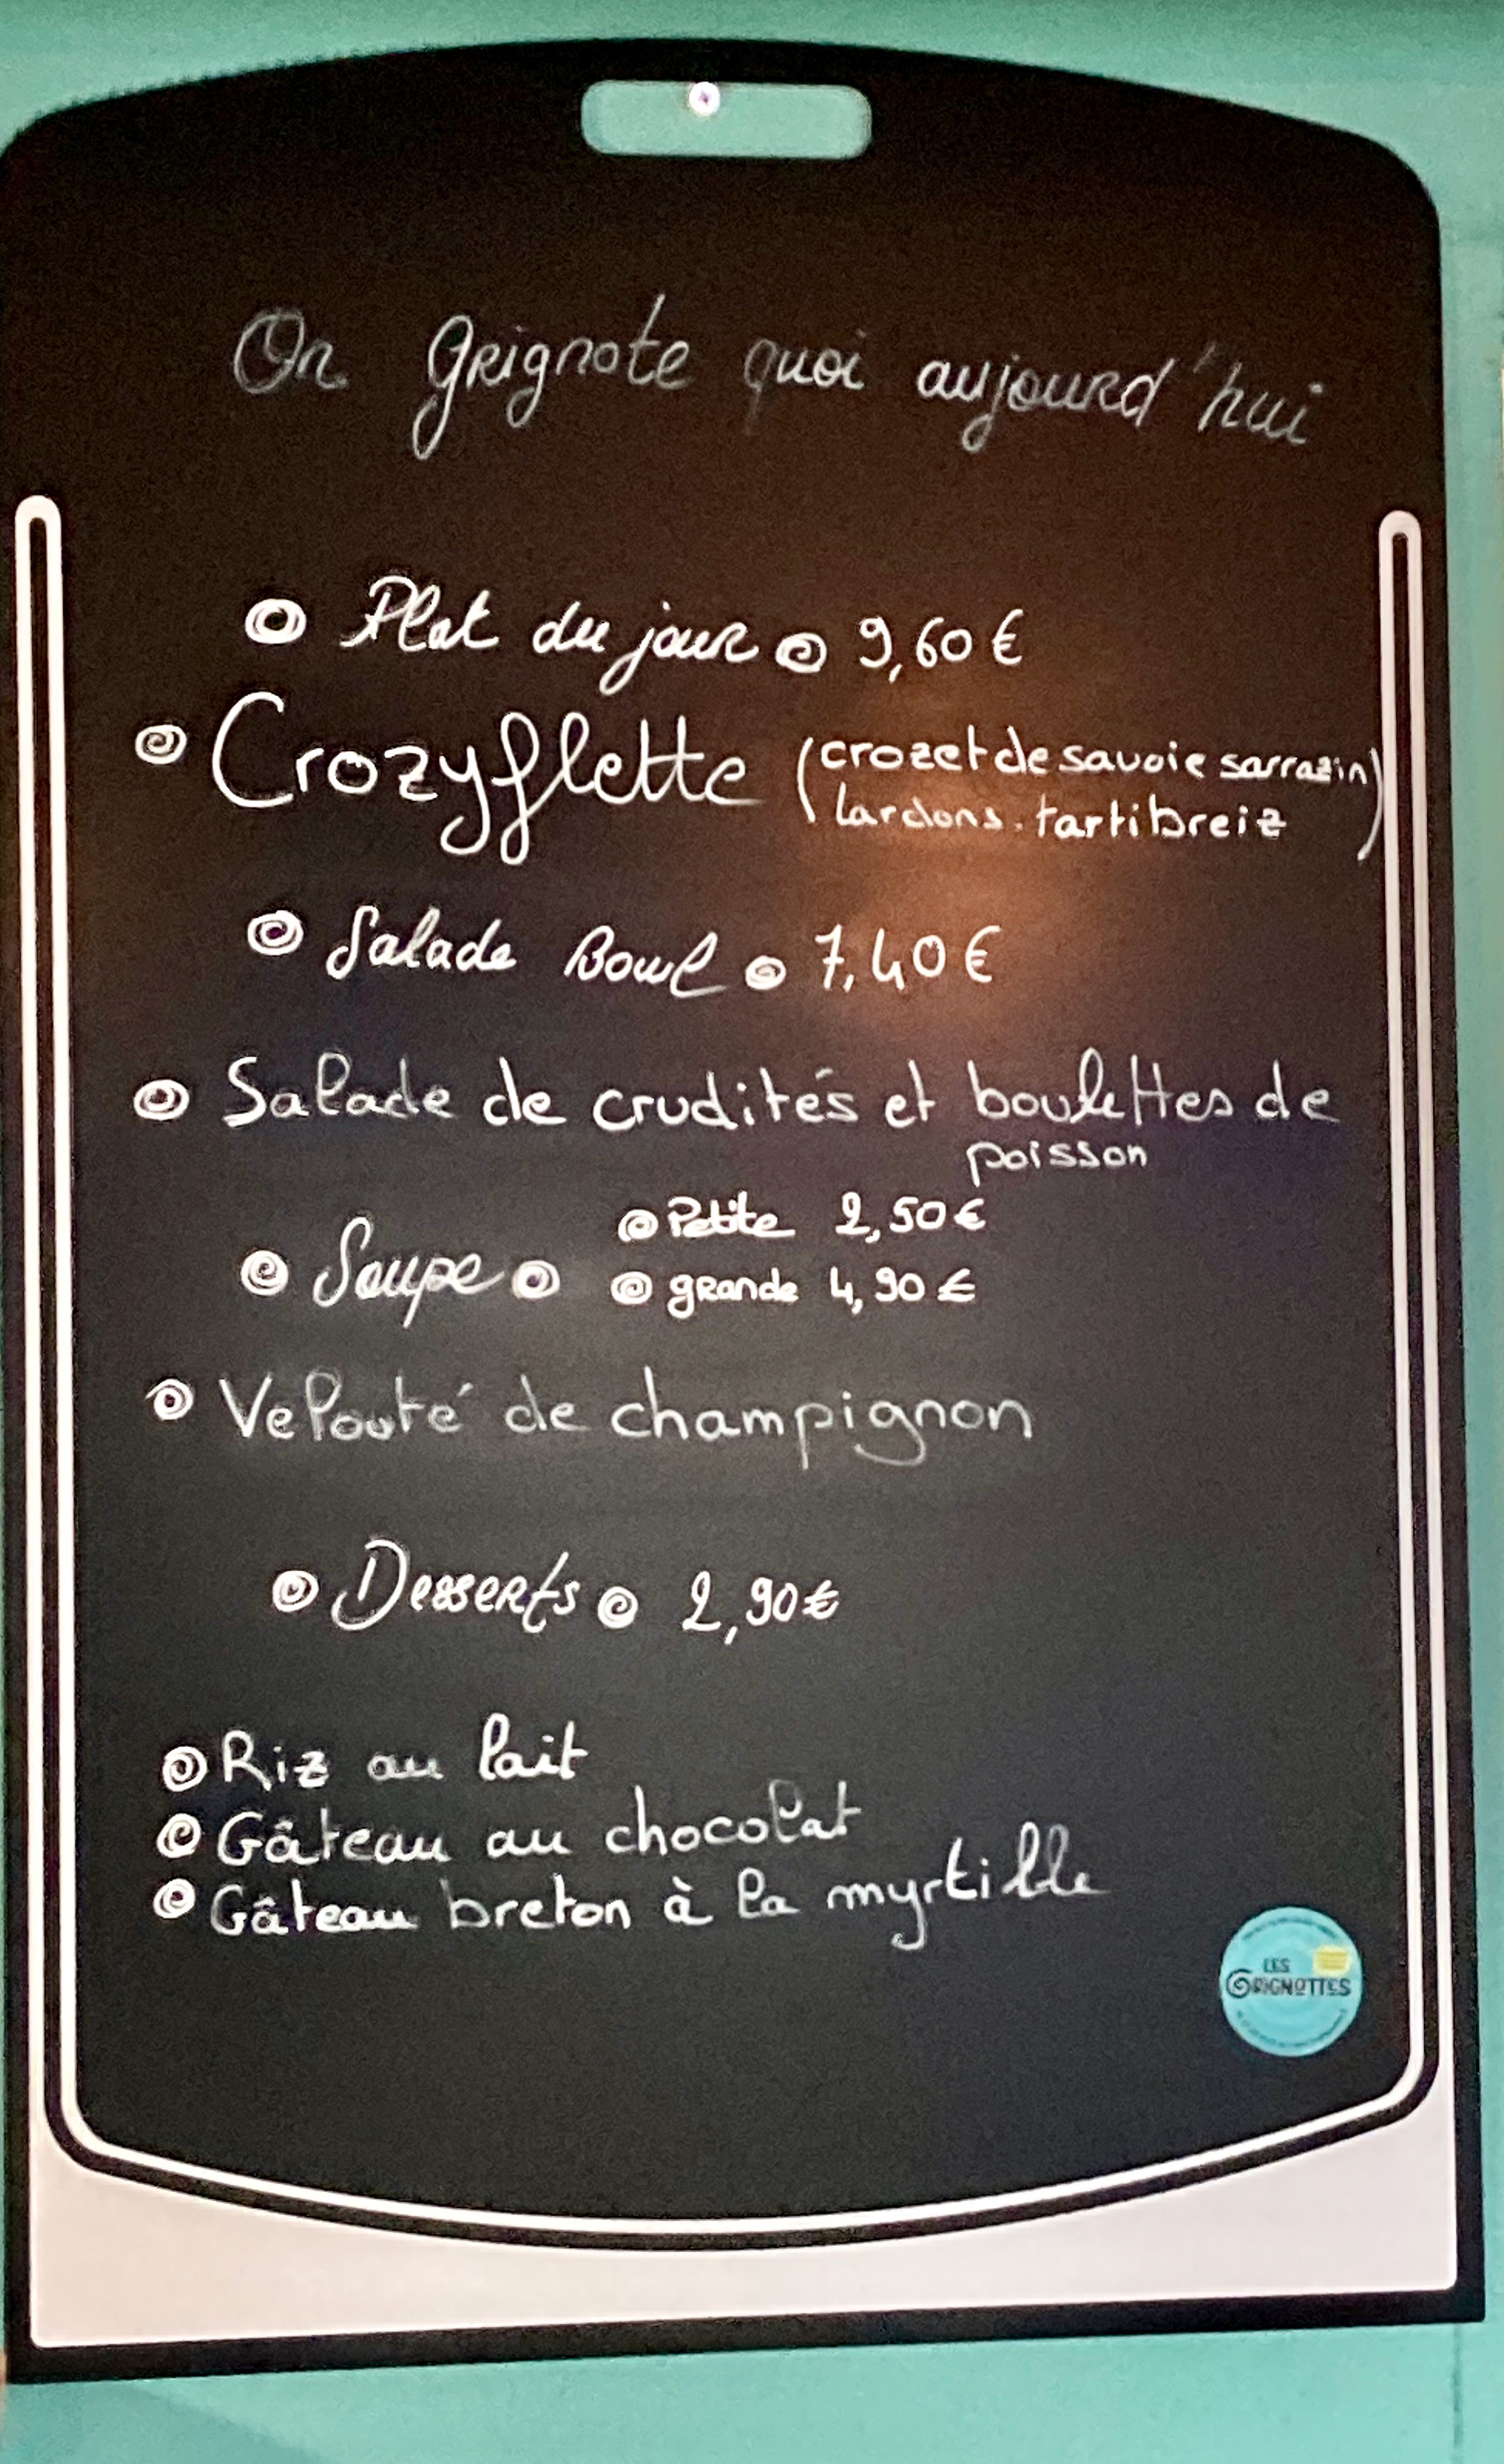 On grignote quoi aujourd'hui
Plat du jour 9,60 €
Crozyflette (crozet de savoie sarrazin
lardons. tartibreiz)
Salade Bowl 7,40 €
Salade de crudités et boulettes de
poisson
Petite 2,50 €
Soupe
grande 4,90 €
Velouté de champignon
Desserts 2,90 €
Riz au lait
Gâteau au chocolat
Gâteau breton à la myrtille
LES
GRIGNOTTES